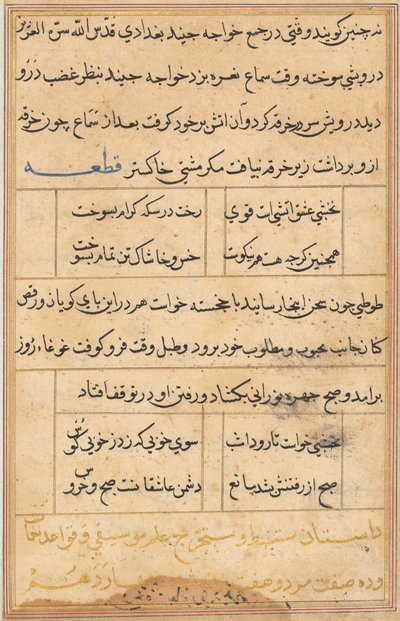 نه چنین گویند وقتی در جمع خواجه جنید بغدادی قدّس الله سرّه العزیز
درویشی سوخته وقت سماع نعره بزد خواجه جنید بنظر غضب درو
دید درویش سر در خرقه کرد و آن اتش بر خود گرفت بعد از سماع چون خرقه
ازو برداشت زیر خرقه نیافت مکر مشتی خاکستر قطعه
نخشبی عشق آتشی است قوی
رخت در سکه کرام بسوخت
همچنین کرچه هست هم نیکوست
خس و خاشاک تن تمام بسوخت
طوطی چون سخن اینجا رسانید با خجسته خواست هر در این بای کویان و رقص
کنان جانب محبوب و مطلوب خود برود و طبل وقت فرو کوفت غوغاء روز
برامد و صبح چهره نورانی بکشاد و رفتن او در توقف افتاد
نخشبی خواست تا رود امشب
سوی خوبی که زد ز خوبی کوس
صبح از رفتنش بشد مانع
دشمن عاشقانست صبح و خروس
داستان مستنبط و مستخرج علم موسیقی و قواعد نغمات